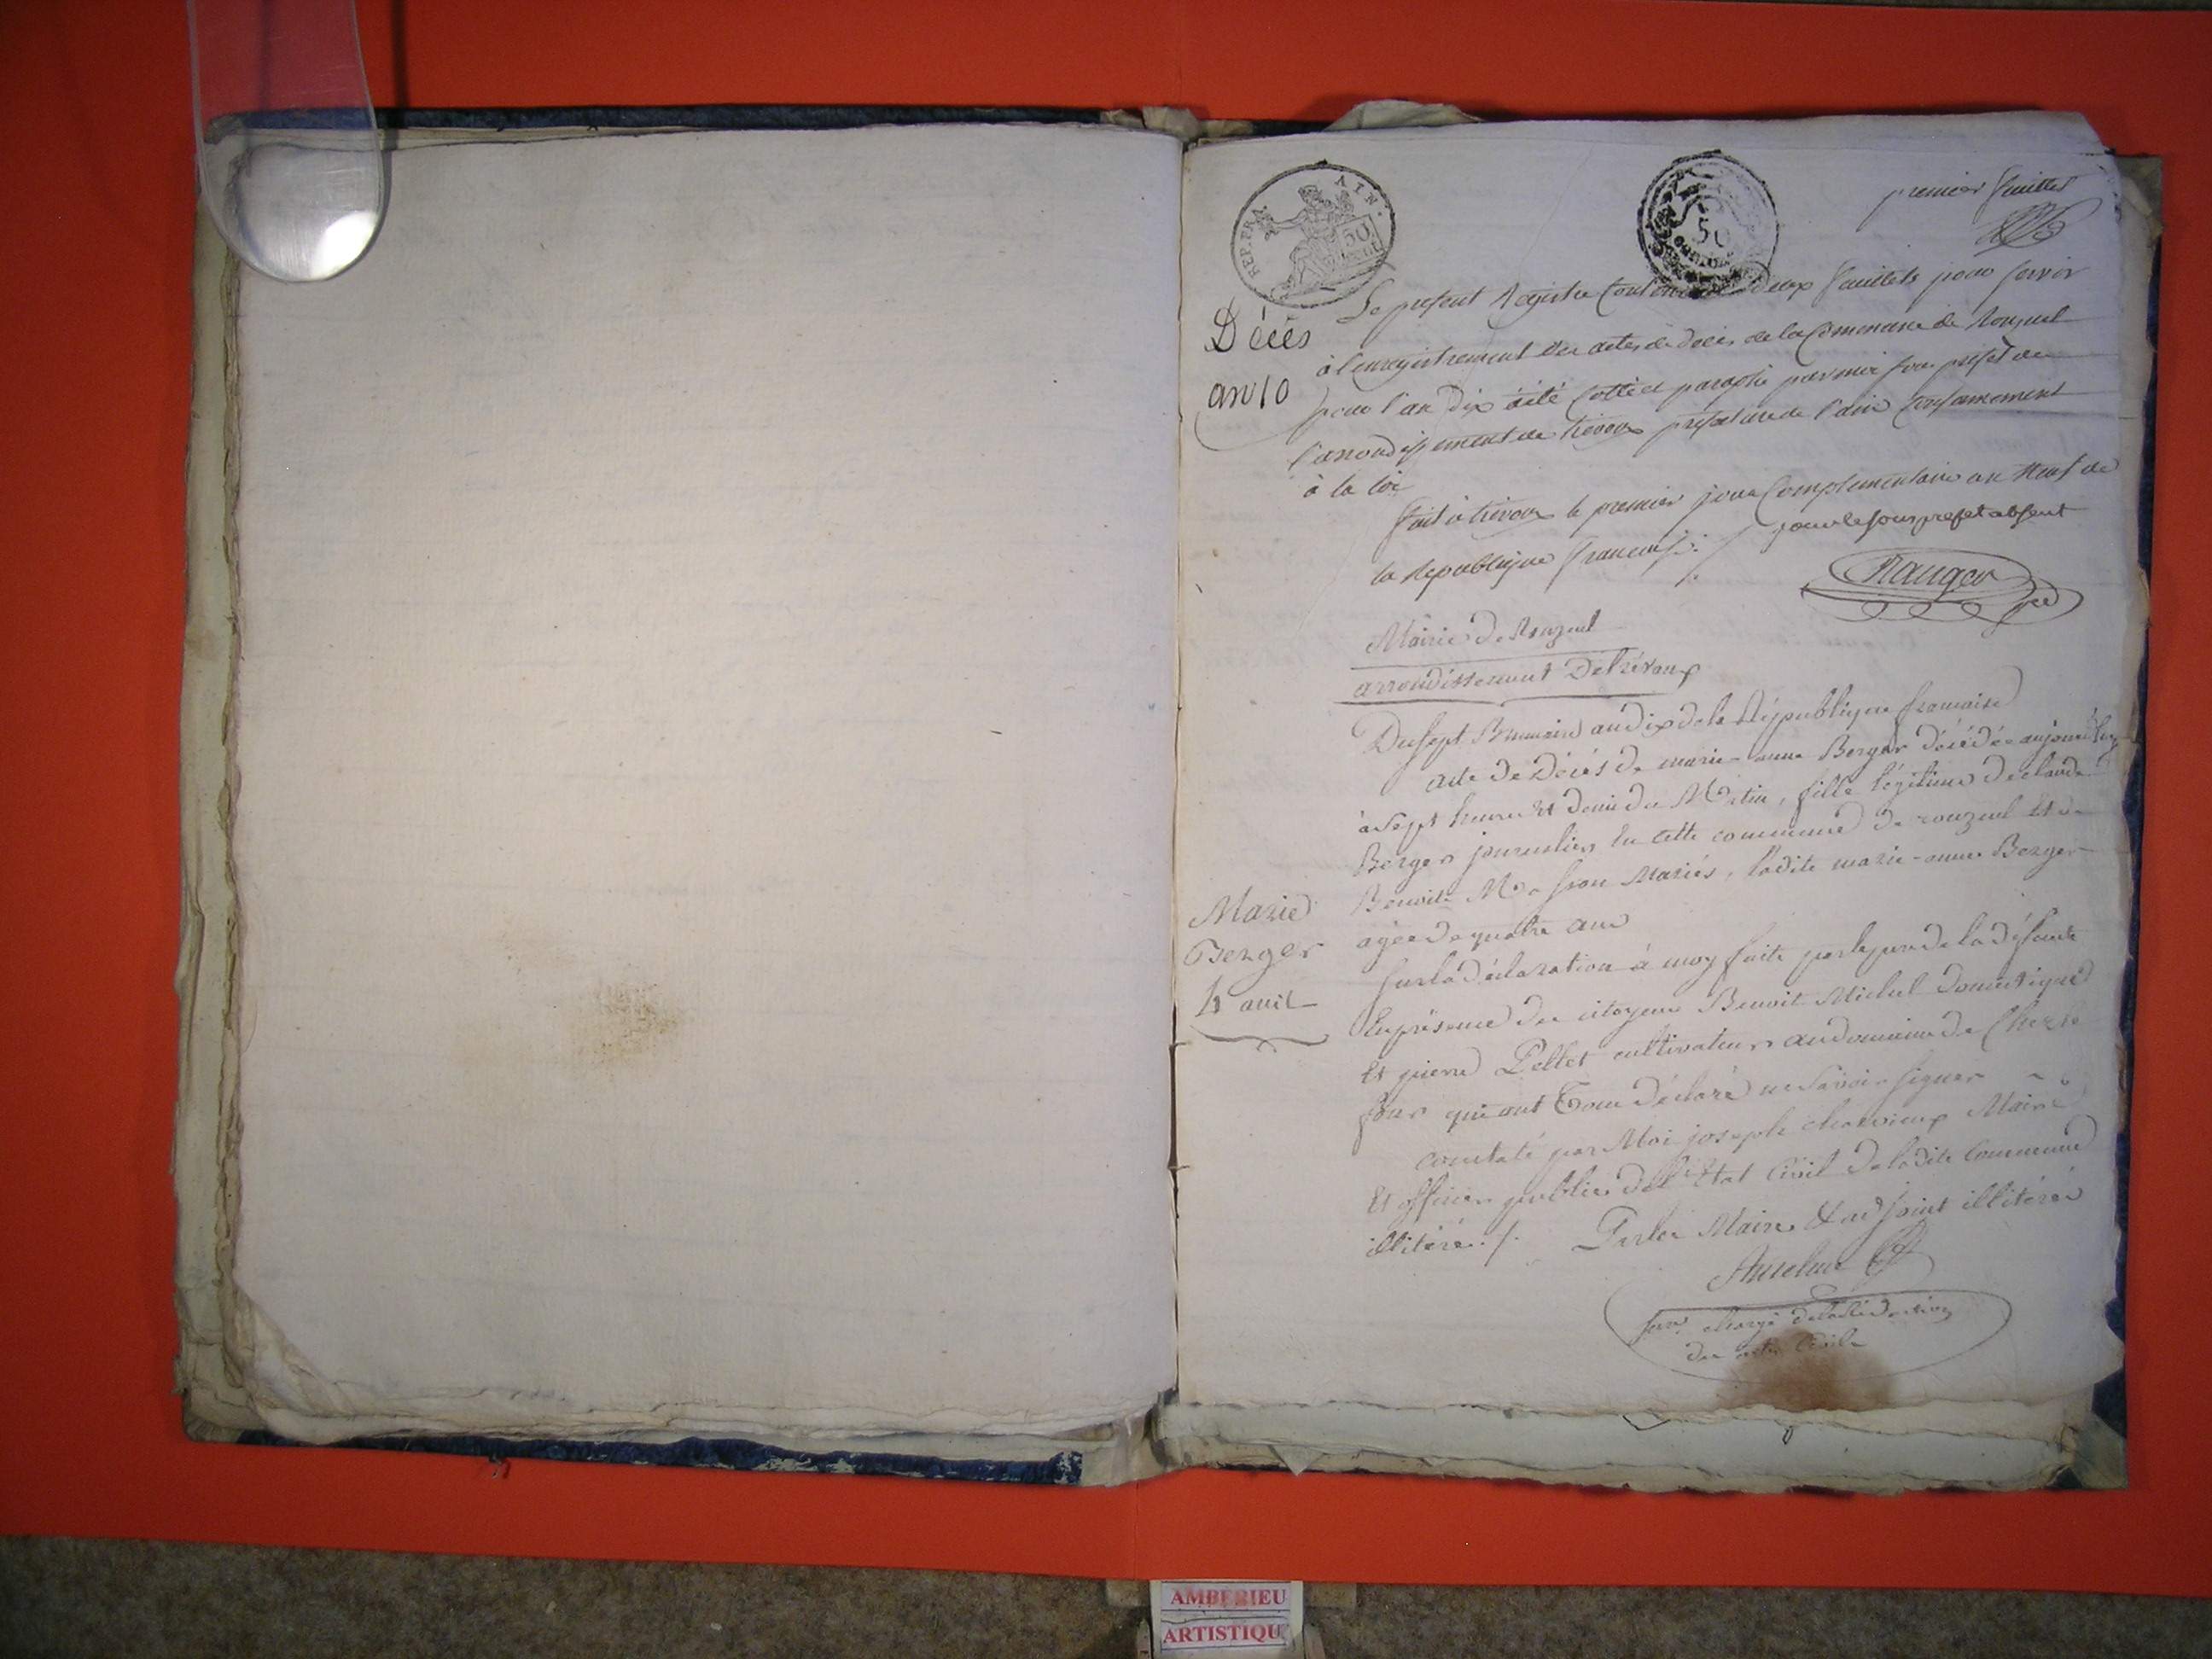 premier feuillet
REP. FRA. AIN.
50
50
Le present Registre contenant deux feuillets pour servir
Décès
à l'enregistrement des actes de décès de la Commune de Rouzuel
an 10
pour l'an dix a été cotté et paraphé par moi sous prefet de
l'arrondissement de trevoux prefecture de l'ain Conformement
à la loi
fait à trevoux le premier jour Complementaire an Neuf de
la Republique francaise ./.
pour le sous prefet absent
Mairie de Rouzuel
arrondissement De trévoux
Du sept Brumaire an dix de la République francaise
acte de Décès de marie-anne Berger décédée aujourd'huy
à sept heures et demie du Matin, fille légitime de claude
Berger journalier en cette commune de rouzuel et de
Benoite Mariés, ladite marie-anne Berger
Marie
Berger
4 ans
agée de quatre ans
sur la déclaration à moy faite par le pere de la défunte
En présence des citoyens Benoit Michel Domestique
Et pierre Pellet cultivateur au domaine de
qui ont Tous déclaré ne savoir signer
constaté par Moi joseph Maire
Et officier public de l'Etat Civil de la dite Commune
illitéré ./. Par les Maire & adjoint illitérés
chargé de la Rédaction
des actes Civils
AMBERIEU
ARTISTIQU